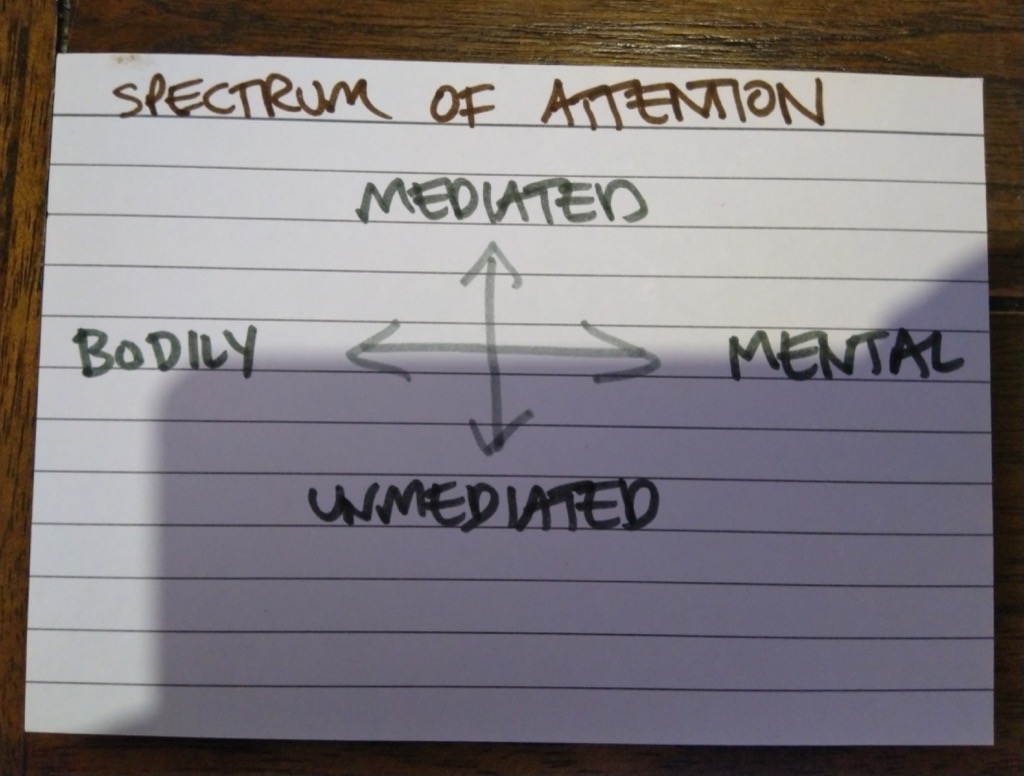 SPECTRUM OF ATTENTION
MEDIATED
BODILY MENTAL
UNMEDIATED